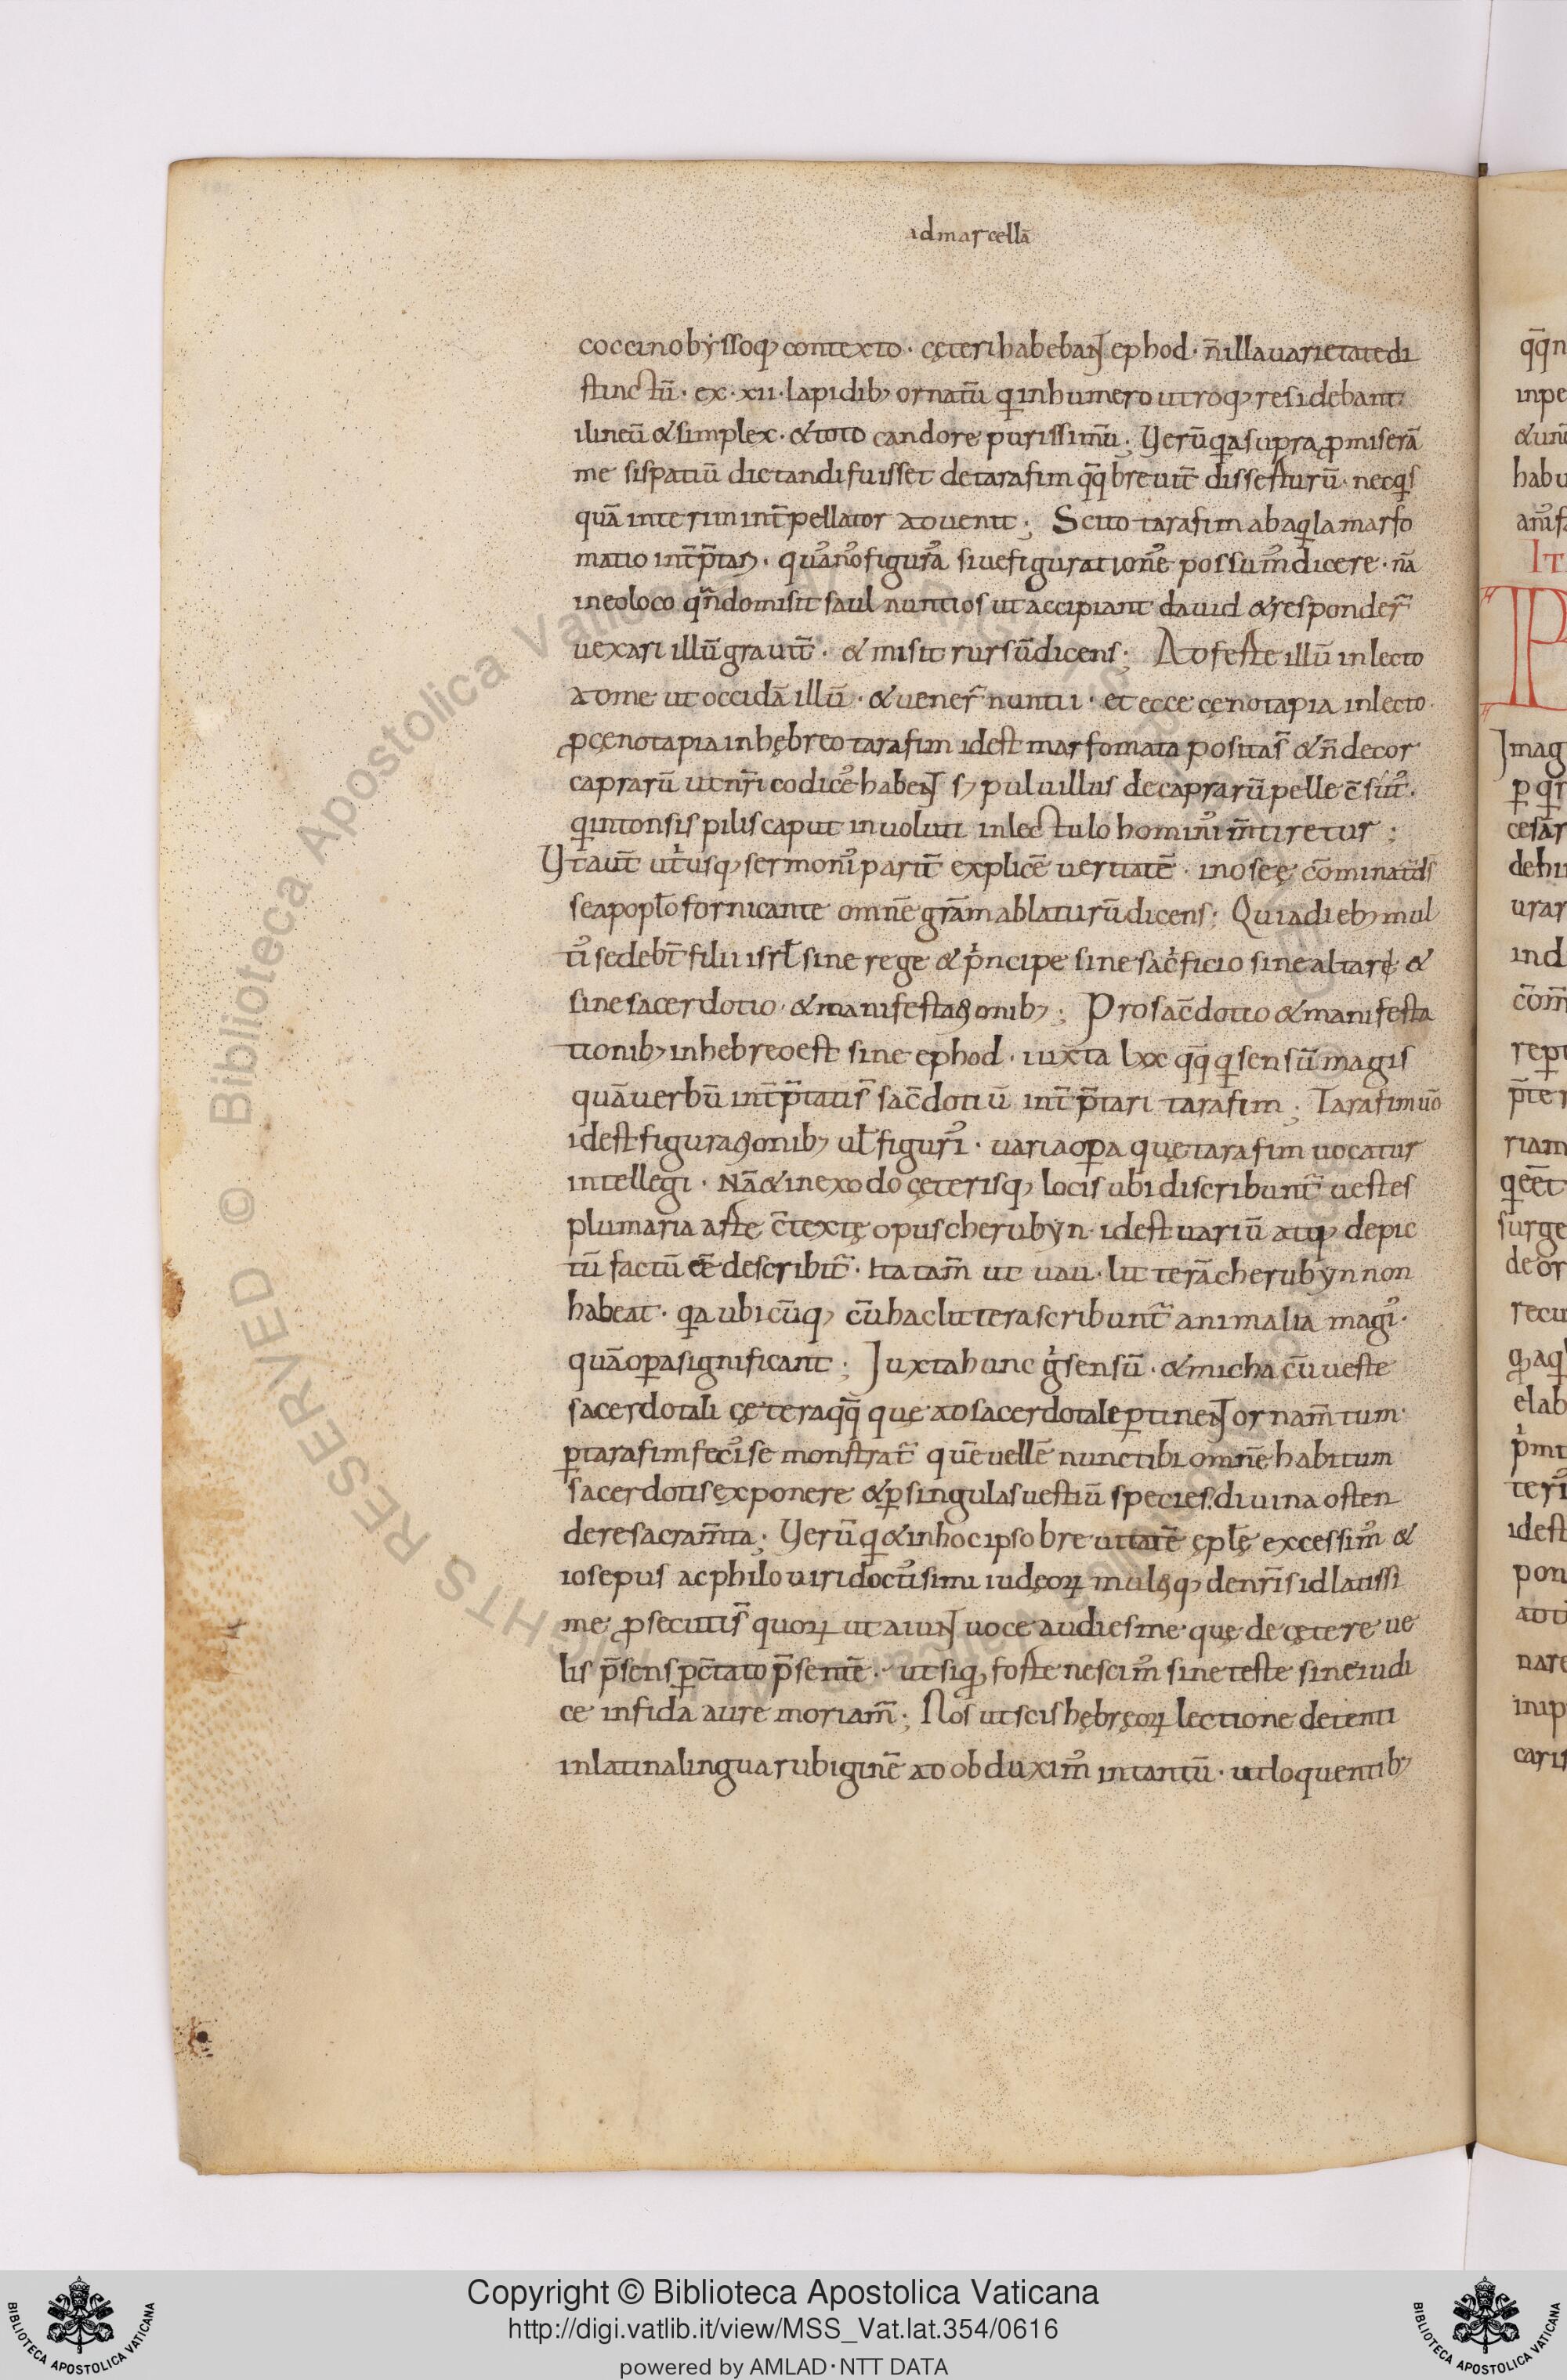 idmarcellā
coccinobẏssoq; contexto · cęteri habebant ephod · n̄ illa uarietate di
stinctū · ex · xii · lapidib; ornatū qi in humero utroq; residebant
i lineū & simplex · & toto candore purissimū; Verū qia supra ꝓmiserā
me si spatiū dictandi fuisset de tarafim qq̄ breuit̄ disserturū · necqis
quā interim int̄pellator aduenit; Scito tarafim ab aqila marfo
matio int̄p̄tari · quas nos figuras siue figurationes possum̄ dicere · nā
in eo loco qn̄do misit saul nuntios ut accipiant dauid & responder̄
uexari illū grauit̄ · & misit rursū dicens; Adferte illū in lecto
ad me ut occidā illū · & uener̄ nuntii · et ecce cęnotapia in lecto ·
ꝓ cęnotapia in hębreo tarafim idest marfomata posita s̄ & n̄ decor
caprarū ut nr̄i codices habent s; puluillus de caprarū pelle c̄sut᷒ ·
qi intonsis pilis caput inuoluti in lectulo hominis m̄tiretur;
Vt aut̄ ut̓usq; sermonis parit̄ explicē ueritatē · in oseę c̄minat̄ ds̄
se a popło fornicante omnē grām ablaturū dicens; Quia dieb; mul
tis sedebt̄ filii isrł sine rege & p̓ncipe sine sac̓ficio sine altare &
sine sacerdotio · & manifestationib;; Pro sac̄dotio & manifesta
tionib; in hebreo est sine ephod · iuxta lxx qq̄ qi sensū magis
quā uerbū int̄p̄tati s̄ sac̄dotiū int̄p̄tari tarafim; Tarafim uō
idest figurationib; uł figuris · uaria oꝑa quę tarafim uocatur
intellegi · nā & in exodo cęterisq; locis ubi discribunt̄ uestes
plumaria arte c̄textę opus cherubẏn · idest uariū atq; depic
tū factū eē describit̄ · Ita tam̄ ut uau · litterā cherubẏn non
habeat · qia ubicūq; cū hac littera scribunt̄ animalia magis ·
quā oꝑa significant; Iuxta hunc g̓ sensū · & micha cū ueste
sacerdotali cętera qq̄ quę ad sacerdotale ꝑtinent ornam̄tum ·
ꝑ tarafim fecisse monstrat̄ quē uellē nunc tibi omnē habitum
sacerdotis exponere & ꝑ singulas uestiū species · diuina osten
dere sacram̄ta; Verū qi & in hoc ipso breuitatē ępłę excessim᷒ &
iosepus ac philo uiri doctissimi iudęoꝝ multiq; de nr̄is id latissi
me ꝓsecuti s̄ quoꝝ ut aiunt uoce audies me quę de cętere ue
lis p̄sens ꝑc̄tato p̄sentē · ut siqi forte nescim᷒ sine teste sine iudi
ce in fida aure moriam̄; Nos ut scis hębręoꝝ lectione detenti
in latina lingua rubiginē ad obduxim᷒ in tantū · ut loquentib;
Copyright © Biblioteca Apostolica Vaticana
http://digi.vatlib.it/view/MSS_Vat.lat.354/0616
powered by AMLAD·NTT DATA